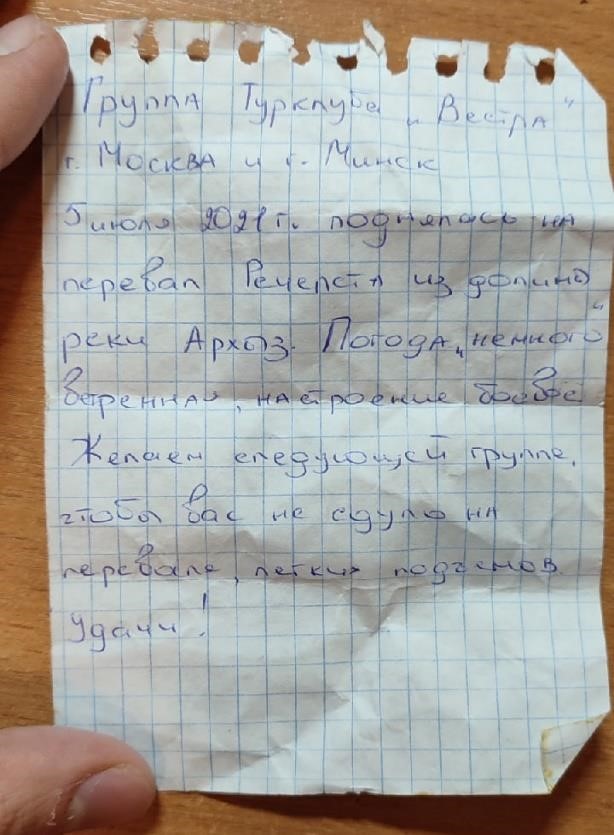 Группа Турклуба „Вестра"
г. Москва и г. Минск
5 июля 2021 г. поднялась на
перевал Речепста из долины
реки Архыз. Погода „немного"
ветренная, настроение боевое
Желаем следующей группе,
чтобы вас не сдуло на
перевале, легких подъемов.
Удачи!